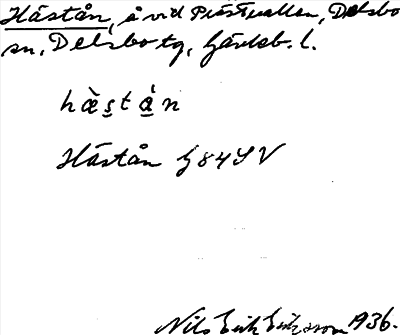 Hästån, å vid Prästvallen, Delsbo
sn, Delsbo tg, Gävleb. l.
hæ̀stán
Hästån G84SV
Nils Erik Eriksson 1936.